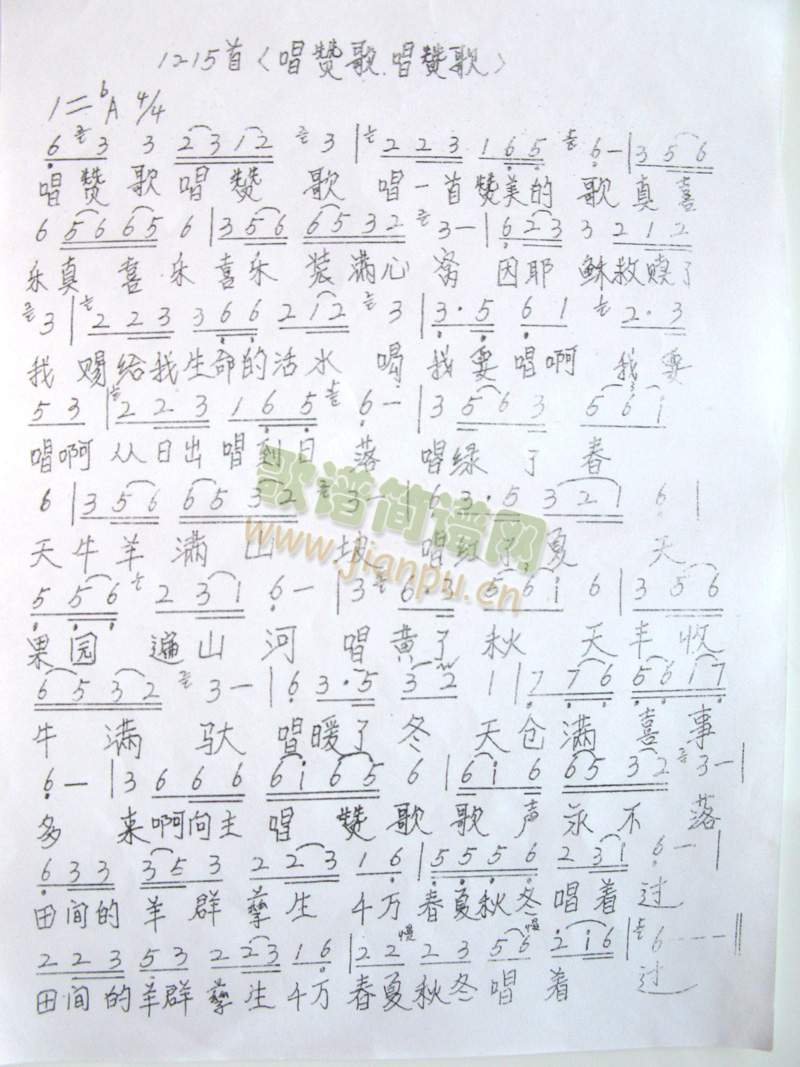 1215首〈唱赞歌.唱赞歌〉
1=ᵇA 4/4
6 3 3 2312 3 | 2 23 1 65 6— | 3 56
唱赞歌唱赞歌唱一首赞美的歌真喜
6 5665 6 | 3 56 6532 3— | 6 23 3 212
乐真喜乐喜乐装满心窝因耶稣救赎了
3 | 2 23 3 66 2 12 3 | 3·5 6 1 2·3
我赐给我生命的活水喝我要唱啊我要
5 3 | 2 23 1 65 6— | 3 56 3 56i
唱啊从日出唱到日落唱绿了春
6 | 3 56 6532 3— | 6 3·5 321 6 |
天牛羊满山坡唱红了夏天
5 56 2 31 6— | 3 6·3 56i 6 | 3 56
果园遍山河唱黄了秋天丰收
6532 3— | 6 3·5 32 1 | 7 76 5617
牛满驮唱暖了冬天仓满喜事
6— | 36 66 6i65 6 | 6i 6 6532 3— |
多来啊向主唱赞歌歌声永不落
6 33 353 2 23 1 6 | 5556 2 31 6— |
田间的羊群孳生千万春夏秋冬唱着过
2 23 53 2 23 16 | 22慢 23 56慢 2 16 | 6——— ‖
田间的羊群孳生千万春夏秋冬唱着过
歌谱简谱网
www.jianpu.cn